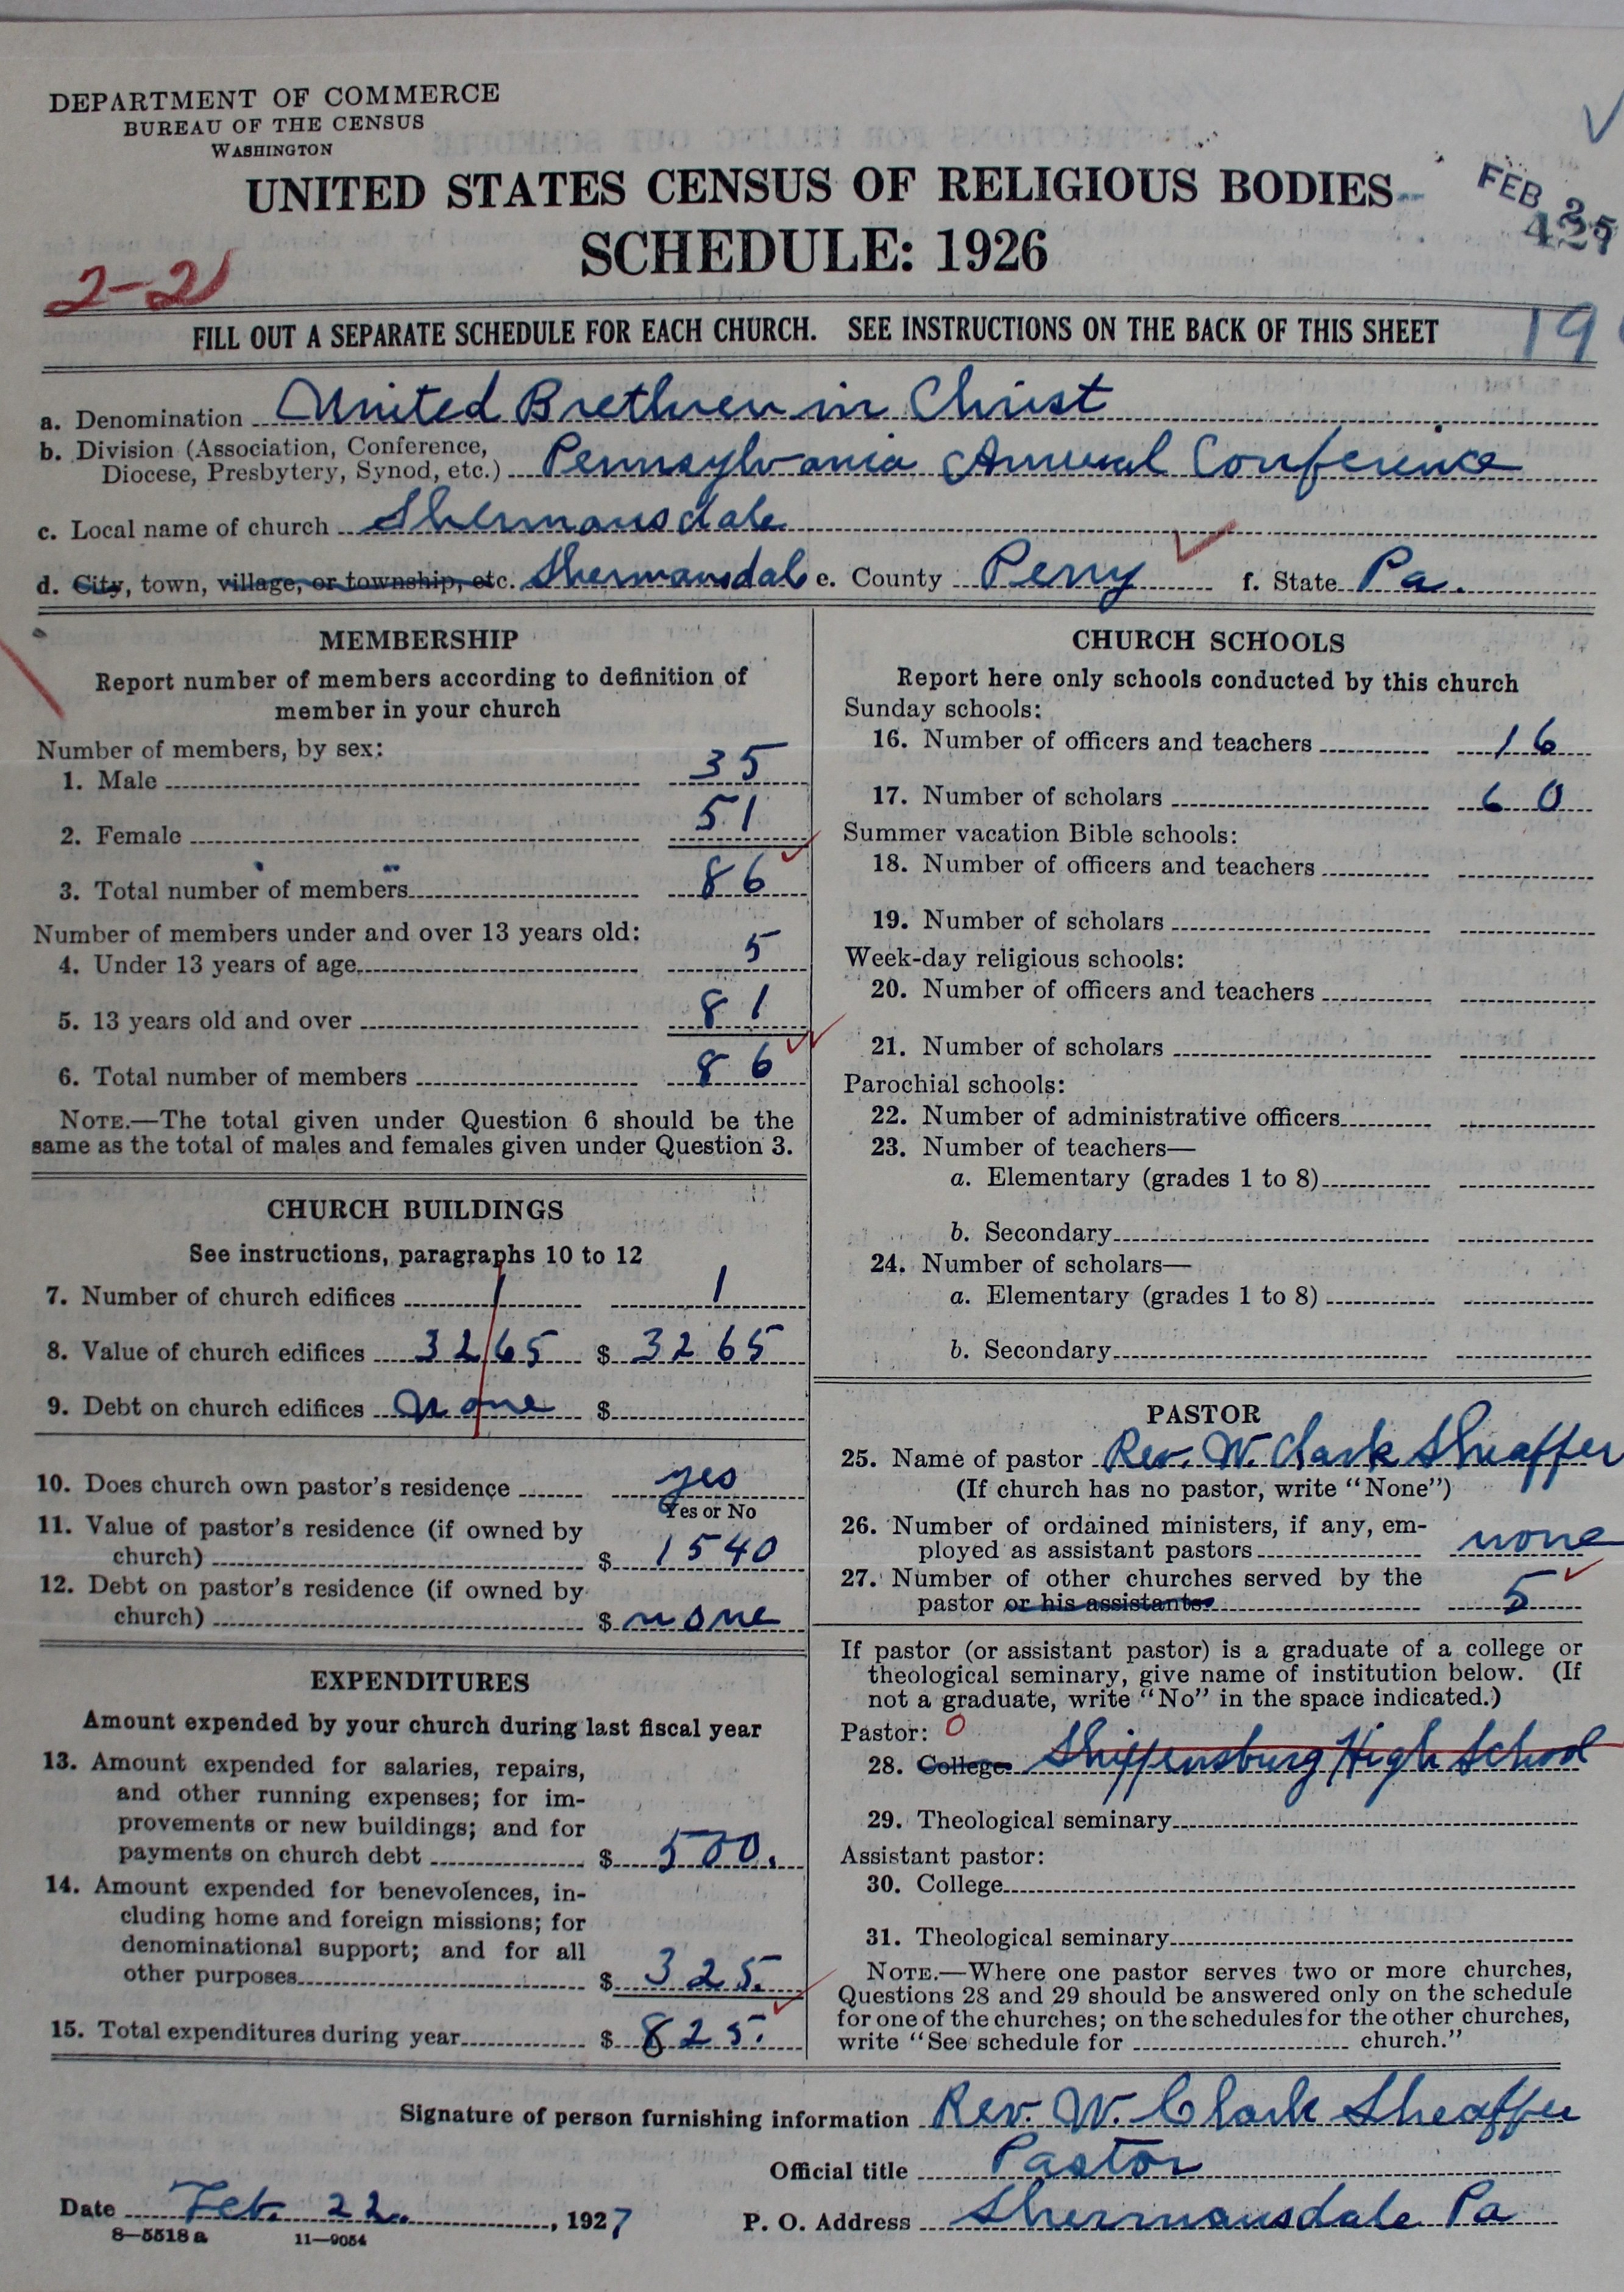 DEPARTMENT OF COMMERCE
BUREAU OF THE CENSUS
WASHINGTON
UNITED STATES CENSUS OF RELIGIOUS BODIES
SCHEDULE: 1926
FEB 25
2-21
FILL OUT A SEPARATE SCHEDULE FOR EACH CHURCH. SEE INSTRUCTIONS ON THE BACK OF THIS SHEET
a. Denomination United Brethren in Christ
b. Division (Association, Conference,
Diocese, Presbytery, Synod, etc.) Pennsylvania Annual Conference
c. Local name of church Shermansdale
d. City, town, village, or township, etc. Shermansdale e. County Perry f. State Pa.
MEMBERSHIP
Report number of members according to definition of
member in your church
Number of members, by sex:
1. Male 35
2. Female 51
3. Total number of members 86
Number of members under and over 13 years old:
4. Under 13 years of age 5
5. 13 years old and over 81
6. Total number of members 86
NOTE.—The total given under Question 6 should be the
same as the total of males and females given under Question 3.
CHURCH BUILDINGS
See instructions, paragraphs 10 to 12
7. Number of church edifices 1 1
8. Value of church edifices 3265 $ 3265
9. Debt on church edifices none $
10. Does church own pastor's residence yes
Yes or No
11. Value of pastor's residence (if owned by
church) $ 1540
12. Debt on pastor's residence (if owned by
church) $ none
EXPENDITURES
Amount expended by your church during last fiscal year
13. Amount expended for salaries, repairs,
and other running expenses; for im-
provements or new buildings; and for
payments on church debt $ 500.
14. Amount expended for benevolences, in-
cluding home and foreign missions; for
denominational support; and for all
other purposes $ 325.
15. Total expenditures during year $ 825.
CHURCH SCHOOLS
Report here only schools conducted by this church
Sunday schools:
16. Number of officers and teachers 16
17. Number of scholars 60
Summer vacation Bible schools:
18. Number of officers and teachers
19. Number of scholars
Week-day religious schools:
20. Number of officers and teachers
21. Number of scholars
Parochial schools:
22. Number of administrative officers
23. Number of teachers—
a. Elementary (grades 1 to 8)
b. Secondary
24. Number of scholars—
a. Elementary (grades 1 to 8)
b. Secondary
PASTOR
25. Name of pastor Rev. W. Clark Sheaffer
(If church has no pastor, write "None")
26. Number of ordained ministers, if any, em-
ployed as assistant pastors none
27. Number of other churches served by the
pastor or his assistants 5
If pastor (or assistant pastor) is a graduate of a college or
theological seminary, give name of institution below. (If
not a graduate, write "No" in the space indicated.)
Pastor: 0
28. College Shippensburg High School
29. Theological seminary
Assistant pastor:
30. College
31. Theological seminary
NOTE.—Where one pastor serves two or more churches,
Questions 28 and 29 should be answered only on the schedule
for one of the churches; on the schedules for the other churches,
write "See schedule for church."
Signature of person furnishing information Rev. W. Clark Sheaffer
Official title Pastor
Date Feb. 22, 1927
P. O. Address Shermansdale Pa
8—5518 a 11—9054